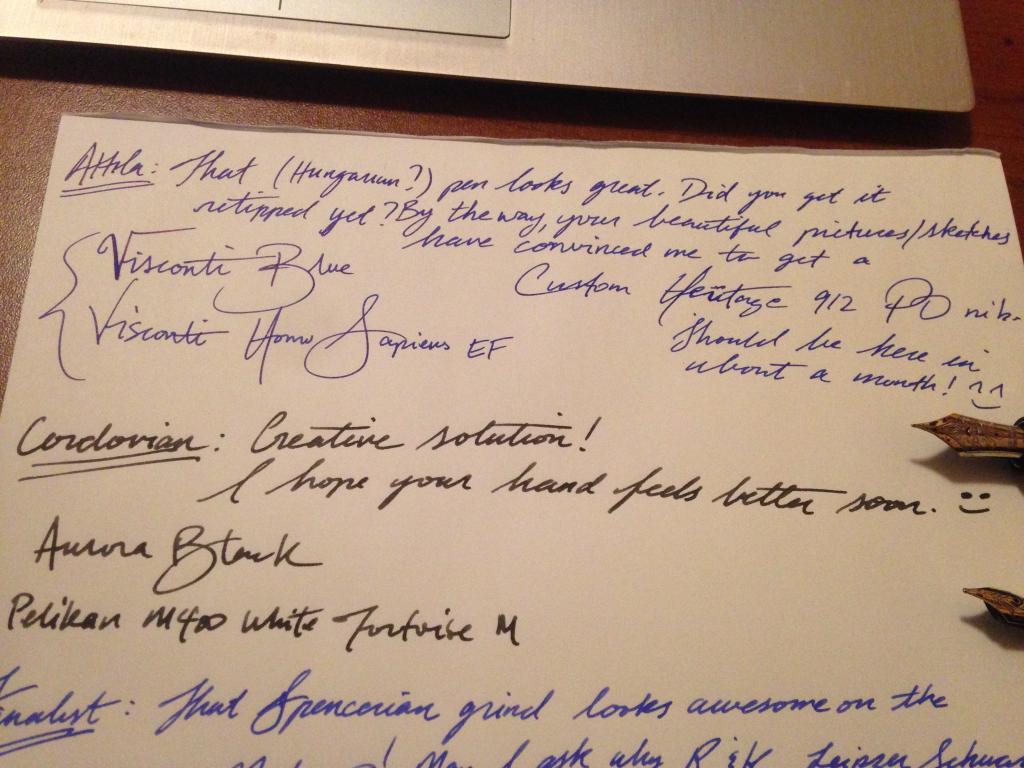 Attila: That (Hungarian?) pen looks great. Did you get it
retipped yet? By the way, your beautiful pictures/sketches
have convinced me to get a
Custom Heritage 912 PO nib.
Should be here in
about a month! ^^
Visconti Blue
Visconti Homo Sapiens EF
Cordovian: Creative solution!
I hope your hand feels better soon. :)
Aurora Black
Pelikan M400 White Tortoise M
inalist: That Spencerian grind looks awesome on the
! May I ask why R & K Leipziger Schwar